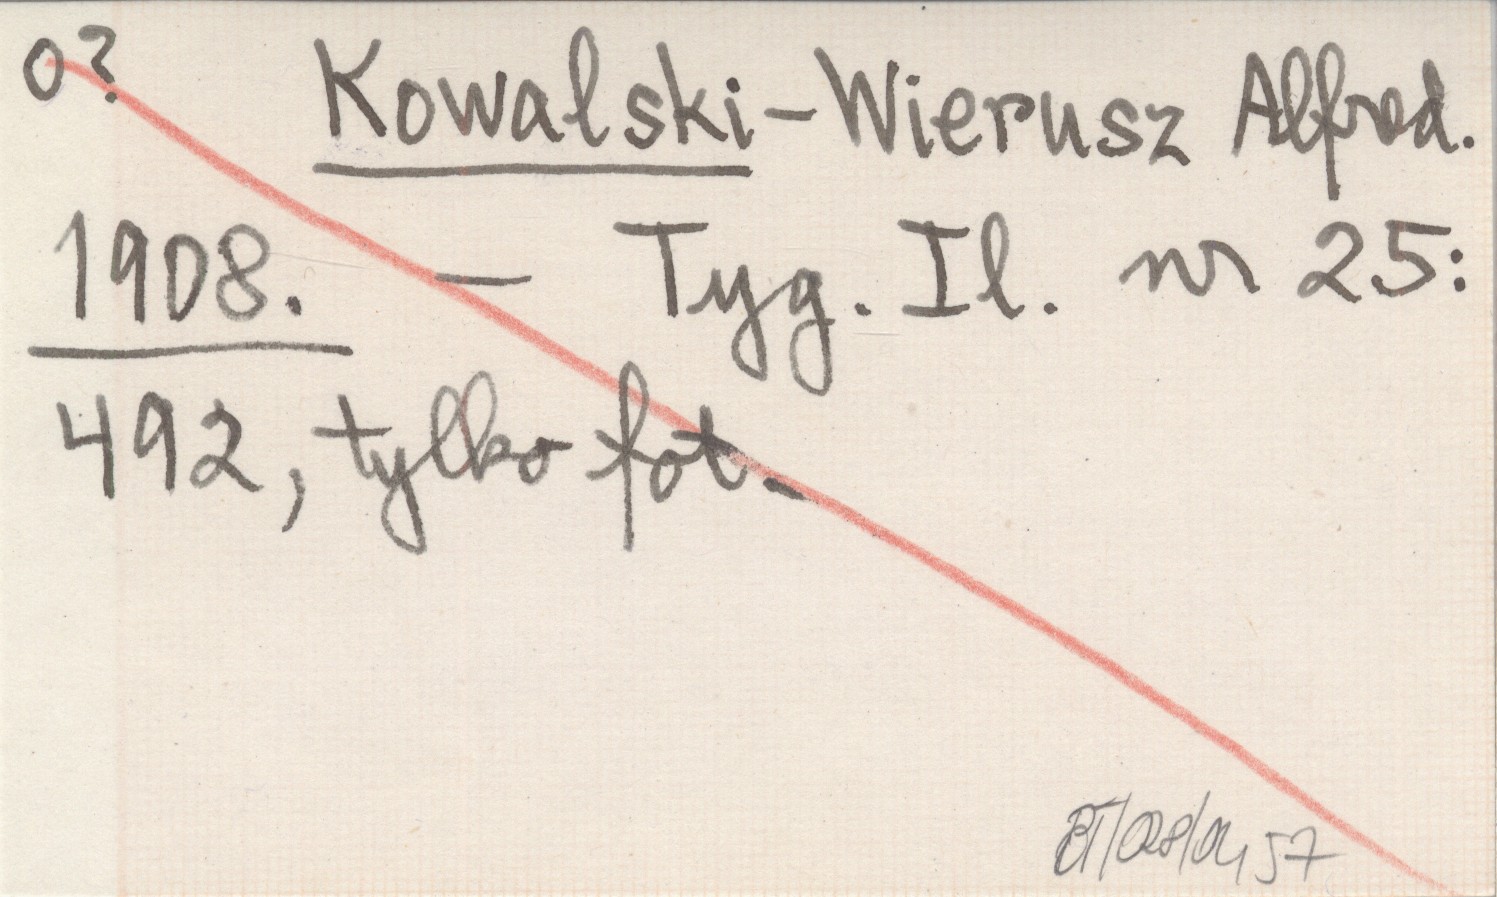 o? Kowalski-Wierusz Alfred.
1908. — Tyg. Il. nr 25:
492, tylko fot.
57